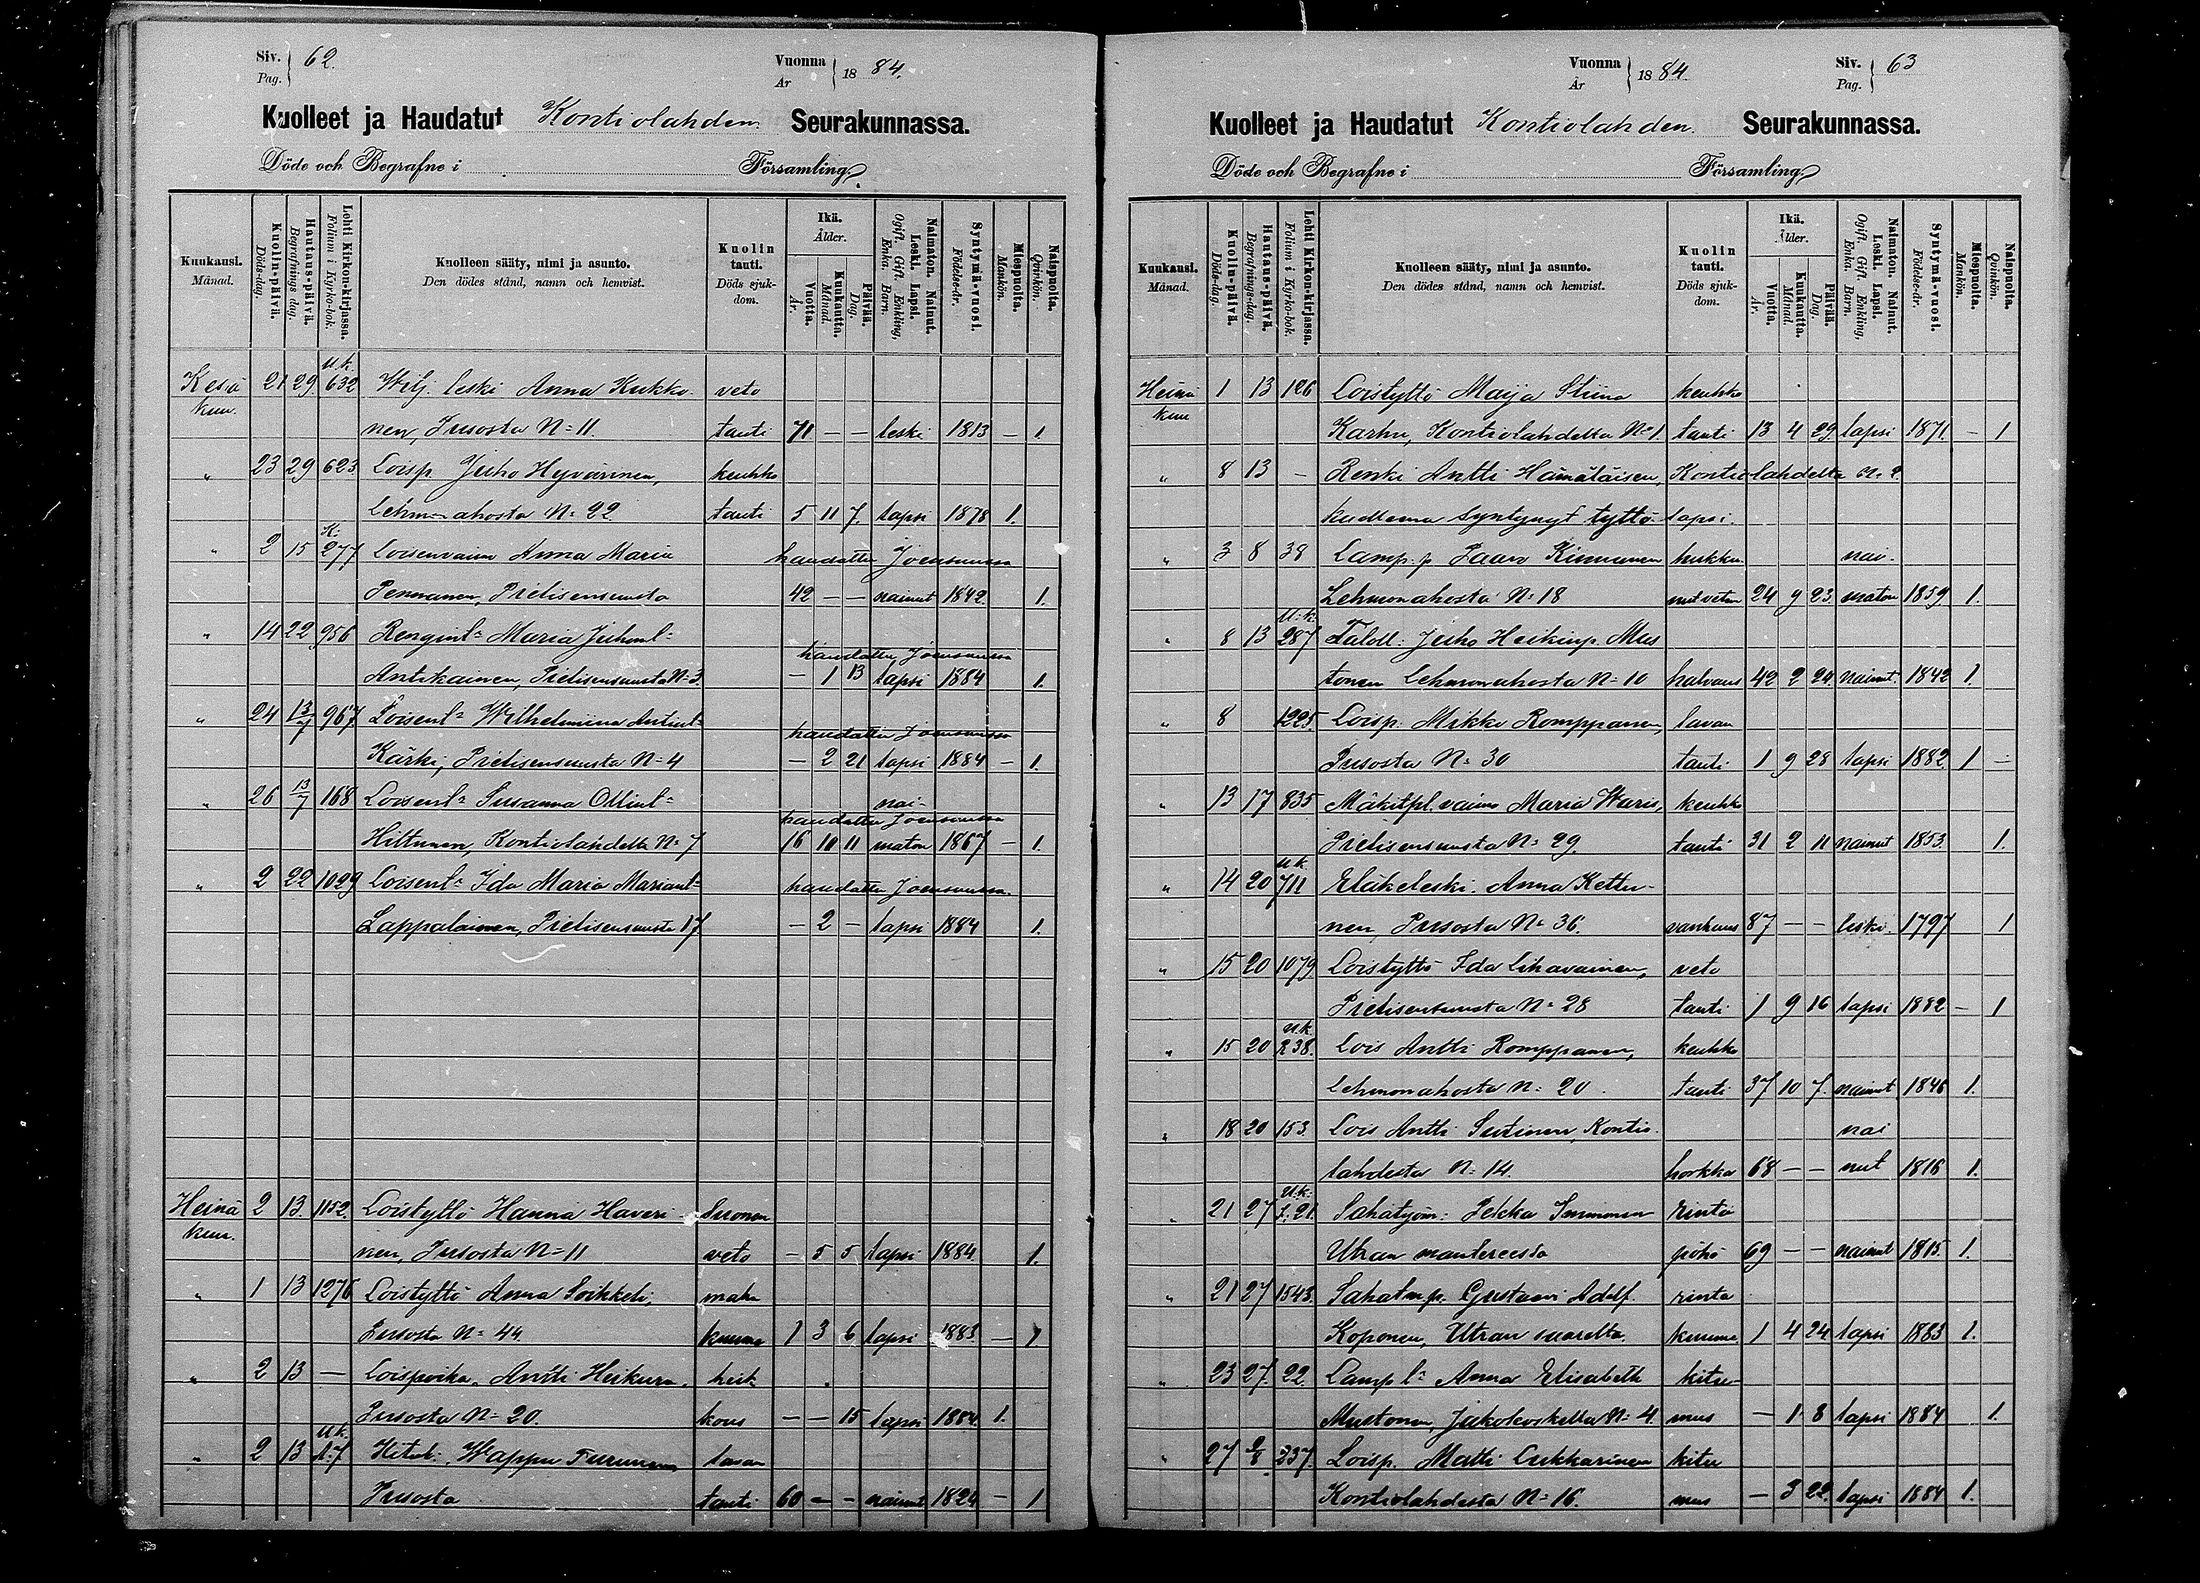 Siv. Pag. 62. Vuonna År 1884.
Kuolleet ja Haudatut Kontiolahden Seurakunnassa.
Döde och Begrafne i Församling.
Kuukausi. Månad.
Kuolin-päivä. Döds-dag.
Hautaus-päivä. Begrafnings dag.
Lehti Kirkon-kirjassa. Folium i Kyrko-bok.
Kuolleen sääty, nimi ja asunto. Den dödes stånd, namn och hemvist.
Kuolin tauti. Döds sjuk-dom.
Ikä. Ålder.
Vuotta. År. Kuukautta. Månad. Päivää. Dag.
Naimaton. Nainut. Leski. Lapsi. Ogift. Gift. Enkling, Enka. Barn.
Syntymä-vuosi. Födelse-år.
Miespuolta. Mankön.
Naispuolta. Qvinkön.
Kesä 21 29. U.k. 632 leski Anna Kukko- veto
kuu. nen, Jusosta N=11. tauti 71 — — leski 1813 — 1
" 23 29 623 Loisp. Juho Hyvärinen, keuhko
Lehmonahosta N=22 tauti 5 11 7. lapsi 1878 1.
" 2 15 K. 277 Loisenvaim Anna Maria haudattu Joensuussa
Pennanen, Pielisensuusta 42 — — nainut 1842. 1.
" 14 22 956 Rengint= Maria Juhont= haudattu Joensuussa
Antikainen, Pielisensuusta N=3. — 1 13 lapsi 1884 1.
" 24 13/7 967 Loisent= Wilhelmina Antint= haudattu Joensuussa
Kärki, Pielisensuusta N=4 — 2 21 lapsi 1884 — 1.
" 26 13/7 168 Loisent= Susanna Ollint= nai-
haudattu Joensuussa
Hiltunen, Kontiolahdelta N=7 16 10 11 maton 1867 — 1.
" 2 22 1029 Loisent= Ida Maria Mariant= haudattu Joensuussa.
Lappalainen, Pielisensuusta 17 — 2 — lapsi 1884 1.
Heinä 2 13. 1152. Loistyttö Hanna Haveri- suonen
kuu. nen, Jusosta N=11 veto — 5 5 lapsi 1884. 1.
" 1 13 1276 Loistyttö Anna Soikkeli, maha
Jusosta N=44 kuume 1 3 6 lapsi 1883 — 1.
" 2 13 — Loispoika Antti Heikura heik
Jusosta N=20. kous — — 15 lapsi 1884. 1.
" 2 13 U.k. Wappu Turunen lavan
Jusosta tauti 60 — — nainut 1824 — 1
Vuonna År 1884. Siv. Pag. 63
Kuolleet ja Haudatut Kontiolahden Seurakunnassa.
Döde och Begrafne i Församling.
Kuukausi. Månad.
Kuolin-päivä. Döds-dag.
Hautaus-päivä. Begrafnings-dag.
Lehti Kirkon-kirjassa. Folium i Kyrko-bok.
Kuolleen sääty, nimi ja asunto. Den dödes stånd, namn och hemvist.
Kuolin tauti. Döds sjuk-dom.
Ikä. Ålder.
Vuotta. År. Kuukautta. Månad. Päivää. Dag.
Naimaton. Nainut. Leski. Lapsi. Ogift. Gift. Enkling, Enka. Barn.
Syntymä-vuosi. Födelse-år.
Miespuolta. Mankön.
Naispuolta. Qvinkön.
Heinä 1 13 126 Loistyttö Maija Stiina keuhko
kuu Karhu, Kontiolahdelta N=1. tauti 13 4 29 lapsi 1871. — 1
" 8 13 — Renki Antti Hämäläisen, Kontiolahdelta N=2.
kuolleena syntynyt tyttö lapsi.
" 3 8 38 Lamp. p Paavo Kinnunen hukku- nai-
Lehmonahosta N=18 nut veteen 24 9 23. maton 1859 1.
" 8 13 U.k. 287 Taloll. Juho Heikinp. Mus
tonen Lehmonahosta N=10 halvaus 42 2 24 nainut. 1842 1.
" 8 1225. Loisp. Mikko Romppanen, lavan
Jusosta N=30 tauti 1 9 28 lapsi 1882 1 —
" 13 17 835 Mäkitpl. vaimo Maria Waris, keuhko
Pielisensuusta N=29. tauti 31 2 11 nainut 1853. 1.
" 14 20 U.k. 711 Eläkeleski Anna Kettu-
nen, Jusosta N=36. vanhuus 87 — — leski. 1797 1
" 15 20 1079 Loistyttö Ida Lihavainen, veto
Pielisensuusta N=28 tauti 1 9 16 lapsi 1882 — 1
" 15 20 U.k. R 38. Lois Antti Romppanen, keuhko
Lehmonahosta N=20. tauti 37 10 7. nainut 1846 1.
" 18 20 153. Lois Antti Sutinen, Kontio- nai
lahdesta N=14. horkka 68 — — nut 1816 1.
" 21 27 U.k. S. 21. Sahatyöm: Pekka Immonen rinta
Utran mantereesta pöhö 69 — — nainut 1815. 1.
" 21 27 1543. Gustaavi Adolf rinta
Koponen, Utran saarelta kuume 1 4 24 lapsi 1883 1.
" 23 27. 22. Lamp t= Anna Elisabeth kitu-
Mustonen, Jakokoskelta N=4 mus — 1 8 lapsi 1884 1.
" 27 2/8 237. Loisp. Matti Lukkarinen kitu
Kontiolahdesta N=16. mus — 3 22. lapsi 1884 1.